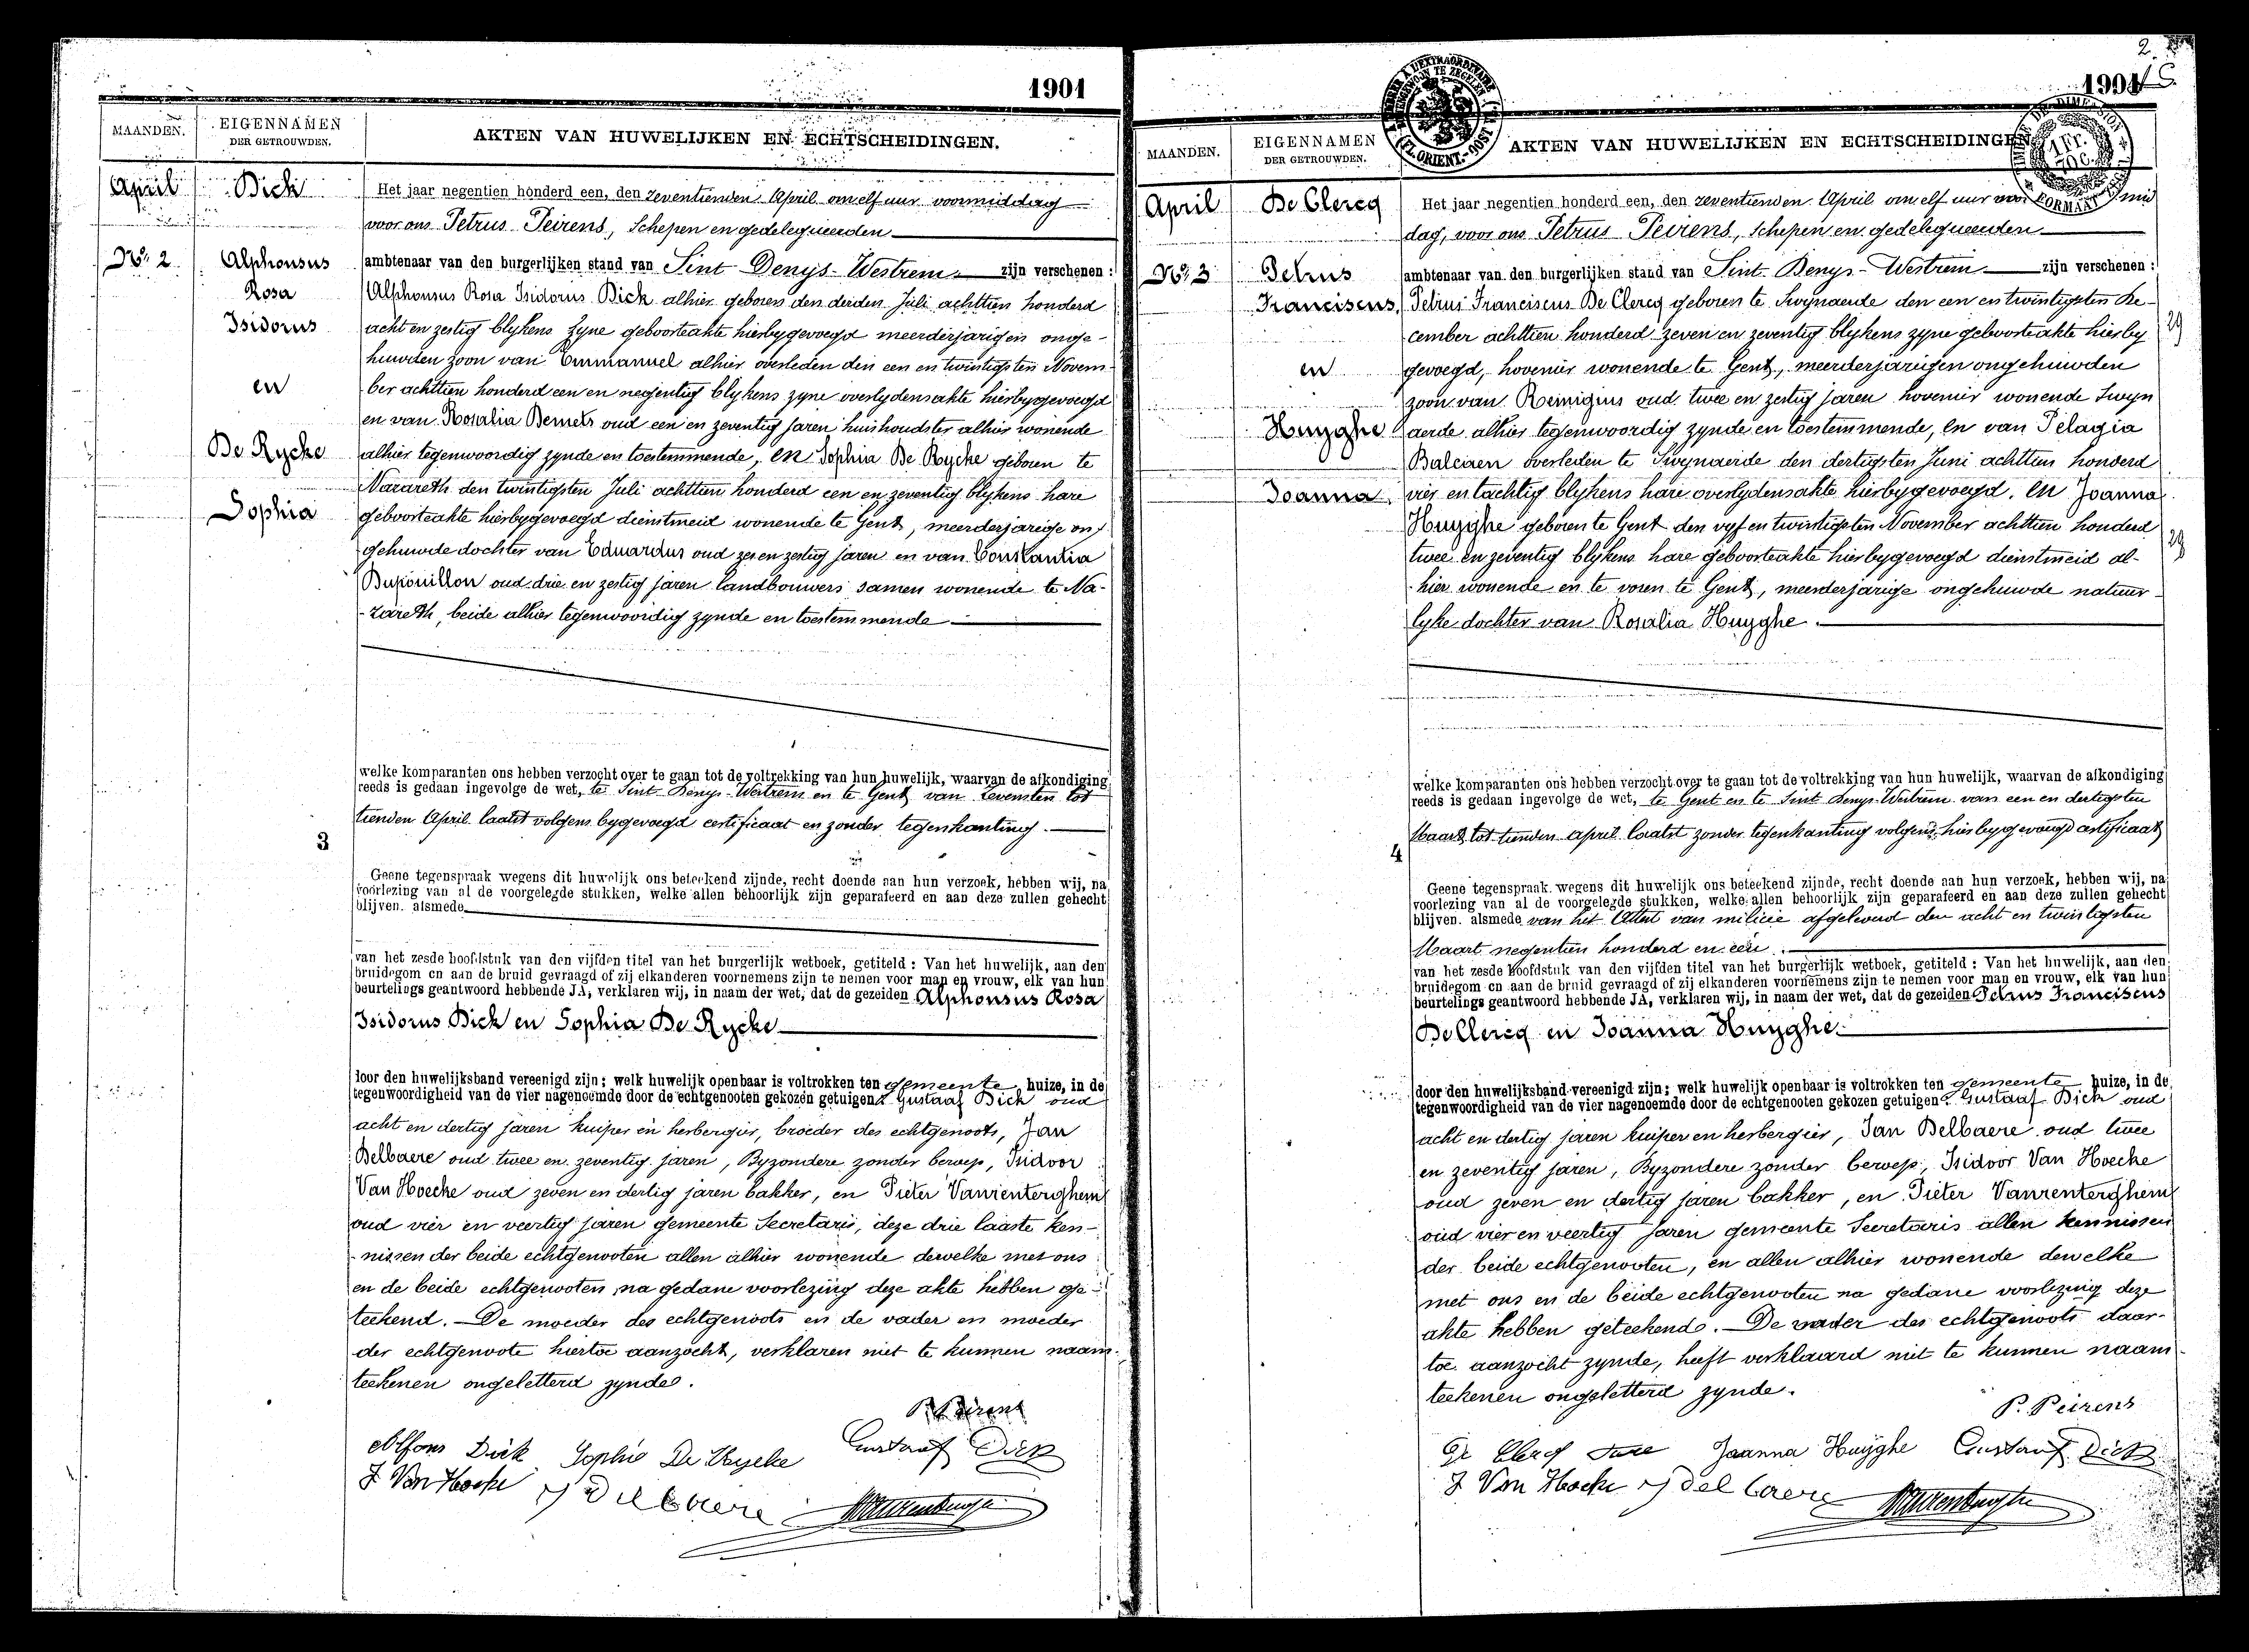 1901
MAANDEN.
EIGENNAMEN
DER GETROUWDEN.
AKTEN VAN HUWELIJKEN EN ECHTSCHEIDINGEN.
April
No. 2
Dick
Alphonsus
Rosa
Isidorus
en
De Rycke
Sophia
Het jaar negentien honderd een, den zeventienden April om elf uur voormiddag
voor ons Petrus Peirens, Schepen en gedelegueerden
ambtenaar van den burgerlijken stand van Sint Denys-Westrem zijn verschenen:
Alphonsus Rosa Isidorus Dick alhier geboren den derden Juli achttien honderd
acht en zestig blykens zyne geboorteakte hierbygevoegd meerderjarigen onge-
huwden zoon van Emmanuel alhier overleden den een en twintigsten Novem-
ber achttien honderd een en negentig blykens zyne overlydensakte hierbygevoegd
en van Rosalia oud een en zeventig jaren huishoudster alhier wonende
alhier tegenwoordig zynde en toestemmende, en Sophia De Rycke geboren te
Nazareth den twintigsten Juli achttien honderd een en zeventig blykens hare
geboorteakte hierbygevoegd dienstmeid wonende te Gent, meerderjarige on-
gehuwde dochter van Eduardus oud zes en zestig jaren en van Constantia
oud drie en zestig jaren landbouwers samen wonende te Na-
zareth, beide alhier tegenwoordig zynde en toestemmende
welke komparanten ons hebben verzocht over te gaan tot de voltrekking van hun huwelijk, waarvan de afkondiging
reeds is gedaan ingevolge de wet, te Sint Denys-Westrem en te Gent van zevensten tot
tienden April laatst volgens bygevoegd certificaat en zonder tegenkanting.
3
Geene tegenspraak wegens dit huwelijk ons beteekend zijnde, recht doende aan hun verzoek, hebben wij, na
voorlezing van al de voorgelegde stukken, welke allen behoorlijk zijn geparafeerd en aan deze zullen gehecht
blijven. alsmede
van het zesde hoofdstuk van den vijfden titel van het burgerlijk wetboek, getiteld: Van het huwelijk, aan den
bruidegom en aan de bruid gevraagd of zij elkanderen voornemens zijn te nemen voor man en vrouw, elk van hun
beurtelings geantwoord hebbende JA, verklaren wij, in naam der wet, dat de gezeiden Alphonsus Rosa
Isidorus Dick en Sophia De Rycke
door den huwelijksband vereenigd zijn; welk huwelijk openbaar is voltrokken ten gemeente huize, in de
tegenwoordigheid van de vier nagenoemde door de echtgenooten gekozen getuigen: Gustaaf Dick oud
acht en dertig jaren kuiper en herbergier, broeder des echtgenoots, Jan
Delbaere oud twee en zeventig jaren, Byzondere zonder beroep, Isidoor
Van Hoecke oud zeven en dertig jaren bakker, en Pieter Vanrenterghem
oud vier en veertig jaren gemeente Secretaris, deze drie laaste ken-
nissen der beide echtgenooten allen alhier wonende dewelke met ons
en de beide echtgenooten, na gedane voorlezing deze akte hebben ge-
teekend. De moeder des echtgenoots en de vader en moeder
der echtgenoote hiertoe aanzocht, verklaren niet te kunnen naam-
teekenen ongeletterd zynde.
P. Peirens
Alfons Dick Sophie De Rycke Gustaaf Dick
J Van Hoecke J Delbaere Vanrenterghem
2
1901
MAANDEN.
EIGENNAMEN
DER GETROUWDEN.
AKTEN VAN HUWELIJKEN EN ECHTSCHEIDINGEN.
April
No. 3
De Clercq
Petrus
Franciscus,
en
Huyghe
Joanna
Het jaar negentien honderd een, den zeventienden April om elf uur voormid
dag, voor ons Petrus Peirens, Schepen en gedelegueerden
ambtenaar van den burgerlijken stand van Sint-Denys-Westrem zijn verschenen:
Petrus Franciscus De Clercq geboren te Swynaerde den een en twintigsten De-
cember achttien honderd zeven en zeventig blykens zyne geboorteakte hierby
gevoegd, hovenier wonende te Gent, meerderjarigen ongehuwden
zoon van Remigius oud twee en zestig jaren hovenier wonende Swyn
aerde alhier tegenwoordig zynde en toestemmende, en van Pelagia
Balcaen overleden te Swynaerde den dertigsten Juni achttien honderd
vier en tachtig blykens hare overlydensakte hierbygevoegd, en Joanna
Huyghe geboren te Gent den vyf en twintigsten November achttien honderd
twee en zeventig blykens hare geboorteakte hierbygevoegd dienstmeid al-
hier wonende en te voren te Gent, meerderjarige ongehuwde natuur-
lyke dochter van Rosalia Huyghe.
welke komparanten ons hebben verzocht over te gaan tot de voltrekking van hun huwelijk, waarvan de afkondiging
reeds is gedaan ingevolge de wet, te Gent en te Sint Denys-Westrem van een en dertigsten
Maart tot tienden april laatst zonder tegenkanting volgens hierbygevoegd certificaat
4
Geene tegenspraak wegens dit huwelijk ons beteekend zijnde, recht doende aan hun verzoek, hebben wij, na
voorlezing van al de voorgelegde stukken, welke allen behoorlijk zijn geparafeerd en aan deze zullen gehecht
blijven. alsmede van het Attest van milicie afgeleverd den acht en twintigsten
Maart negentien honderd en een.
van het zesde hoofdstuk van den vijfden titel van het burgerlijk wetboek, getiteld: Van het huwelijk, aan den
bruidegom en aan de bruid gevraagd of zij elkanderen voornemens zijn te nemen voor man en vrouw, elk van hun
beurtelings geantwoord hebbende JA, verklaren wij, in naam der wet, dat de gezeiden Petrus Franciscus
De Clercq en Joanna Huyghe.
door den huwelijksband vereenigd zijn; welk huwelijk openbaar is voltrokken ten gemeente huize, in de
tegenwoordigheid van de vier nagenoemde door de echtgenooten gekozen getuigen: Gustaaf Dick oud
acht en dertig jaren kuiper en herbergier, Jan Delbaere oud twee
en zeventig jaren, Byzondere zonder beroep, Isidoor Van Hoecke
oud zeven en dertig jaren bakker, en Pieter Vanrenterghem
oud vier en veertig jaren gemeente Secretaris allen kennissen
der beide echtgenooten, en allen alhier wonende dewelke
met ons en de beide echtgenooten na gedane voorlezing deze
akte hebben geteekend. De vader des echtgenoots daar-
toe aanzocht zynde, heeft verklaard niet te kunnen naam-
teekenen ongeletterd zynde.
P. Peirens
De Clercq Joanna Huyghe Gustaaf Dick
J Van Hoecke J Delbaere Vanrenterghem